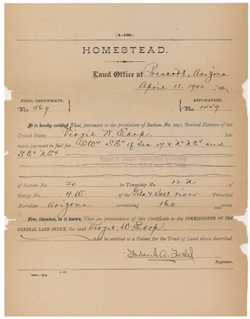 HOMESTEAD.
Land Office at Prescott, Arizona
April 18, 1900
FINAL CERTIFICATE,
No. 569
APPLICATION,
No. 1449
It is hereby certified That, pursuant to the provisions of Section No. 2291, Revised Statutes of the
United States, Virgie W.
made payment in full for SW4 SE4 of Sec. 17 & N2 NE4 and
SE4 NE4
of Section No. 20 in Township No. 12 N
Range No. 4 W of the Gila & Salt River
Meridian Arizona containing 160 acres.
Now, therefore, be it known, That on presentation of this Certificate to the COMMISSIONER OF THE
GENERAL LAND OFFICE, the said Virgie W.
shall be entitled to a Patent for the Tract of Land above described.
Register.